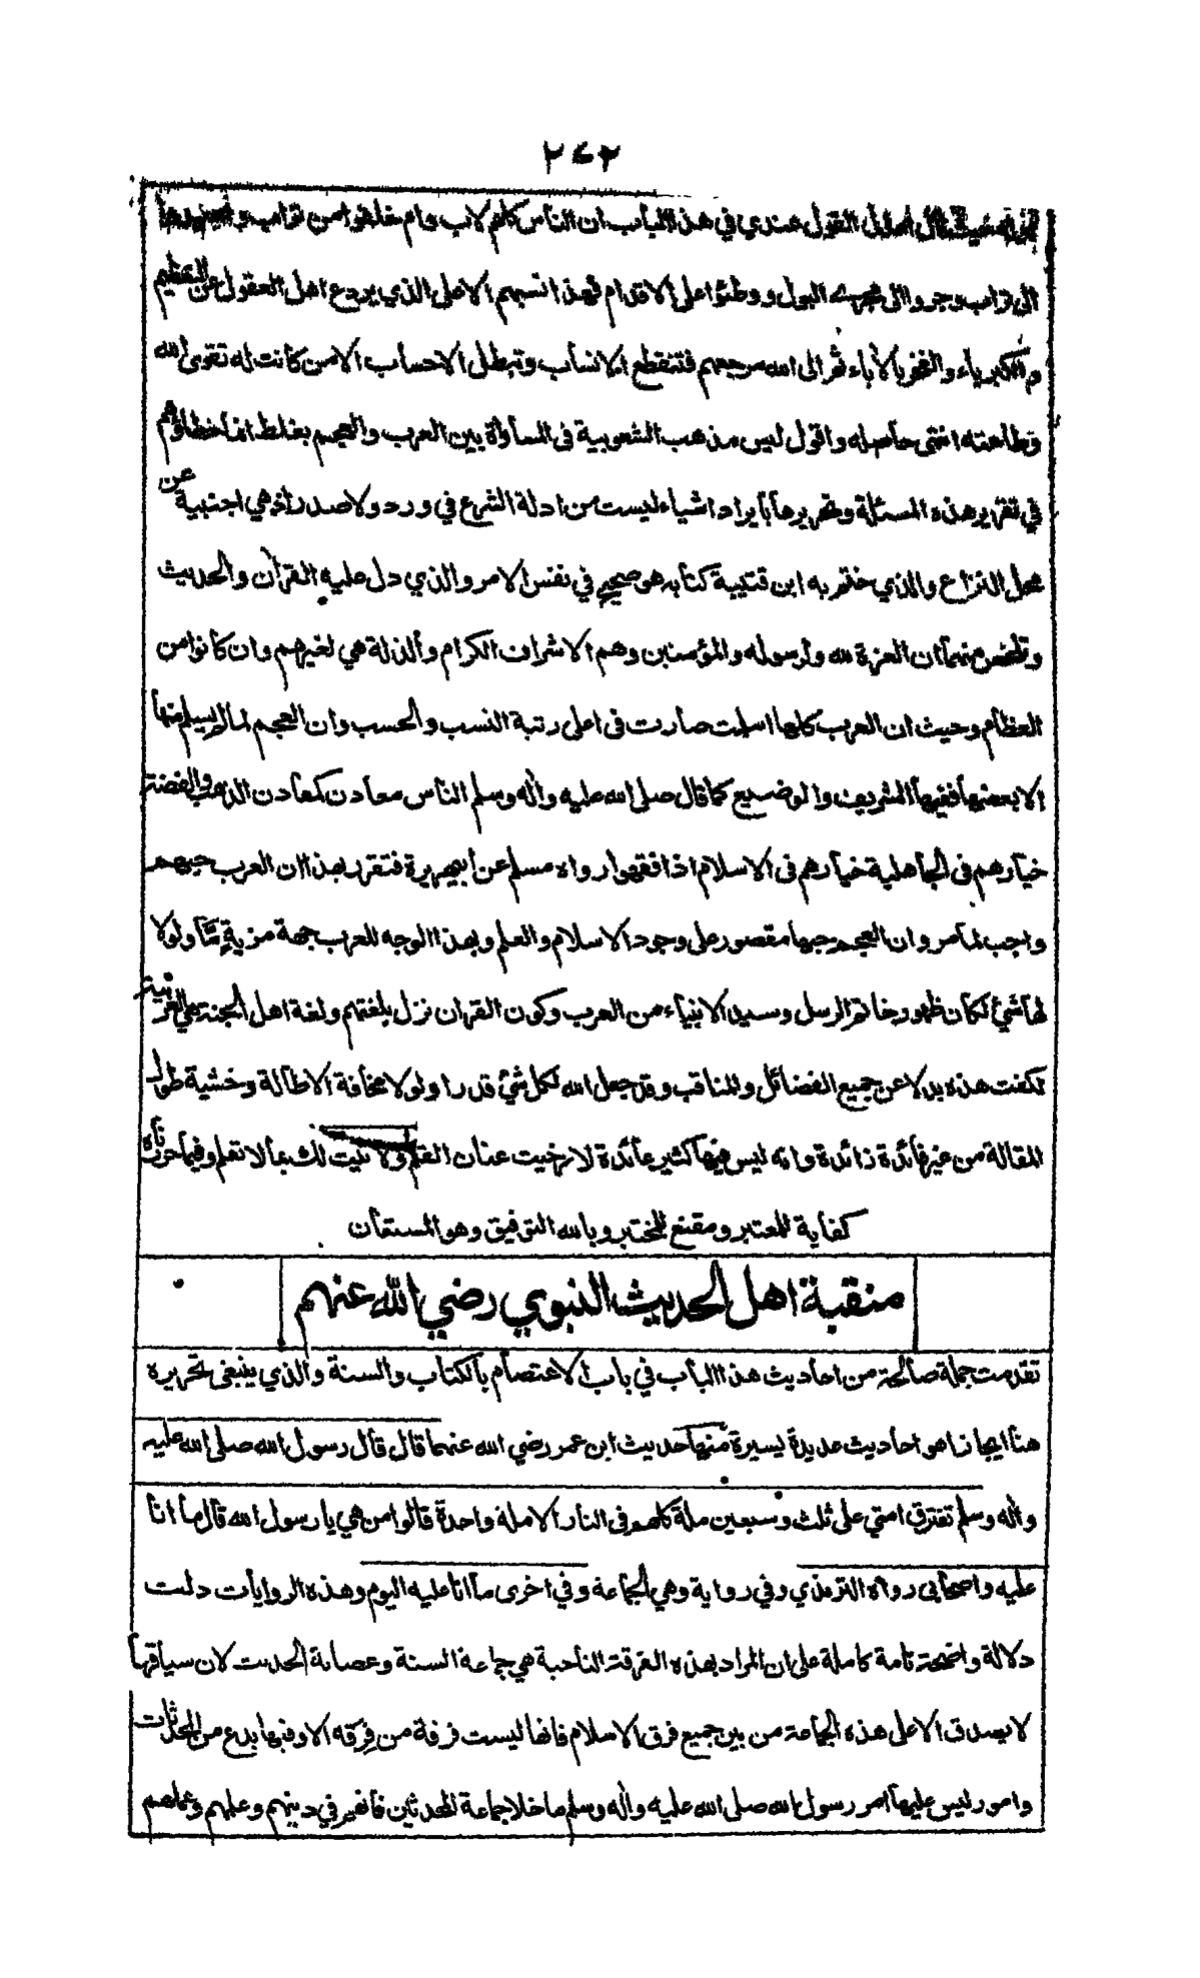 ٢٧٢
اعدل القول عندي في هذا الباب ان الناس كلهم لاب وام خلقوا من تراب
الى تراب وجروا الى مجرى البول ووطئوا على الاقدام فهذا نسبهم الاعلى الذي يردع اهل العقول عن التعظيم
والكبرياء والفخر بالاباء ثم الى الله مرجعهم فتنقطع الانساب وتبطل الاحساب الا من كانت له تقوى الله
وطاعته انتهى حاصله واقول ليس مذهب الشعوبية فى المساواة بين العرب والعجم بغلط انما خطاؤهم
في تقرير هذه المسئلة وتحريرها بايراد اشياء ليست من ادلة الشرع في ورد ولا صدر اذ هي اجنبية عن
محل النزاع والذي ختم به ابن قتيبة كتابه هو صحيح في نفس الامر والذي دل عليه القرآن والحديث
وتلخص منهما ان العزة لله ولرسوله والمؤمنين وهم الاشراف الكرام والذلة هي لغيرهم وان كانوا من
العظام وحيث ان العرب كلها اسلمت صارت فى اعلى رتبة النسب والحسب وان العجم لما لم يسلم منها
الا بعضها ففيها الشريف والوضيع كما قال صلى الله عليه واٰله وسلم الناس معادن كمعادن الذهب والفضة
خيارهم فى الجاهلية خيارهم فى الاسلام اذا فقهوا رواه مسلم عن ابيهريرة فتقرر بهذا ان العرب حبهم
واجب لما مر وان العجم حبها مقصور على وجود الاسلام والعلم وبهذا الوجه للعرب جهة مزية ما ولولا
لها شئ لكان ظهور خاتم الرسل وسيد الانبياء من العرب وكون القران نزل بلغتهم ولغة اهل الجنة هي العربية
لكفت هذه بدلا عن جميع الفضائل والمناقب وقد جعل الله لكل شئ قدرا ولولا مخافة الاطالة وخشية طول
المقالة من غير فائدة زائدة وانه ليس فيها كثير عائدة لارخيت عنان القلم ولاتيت لك بما لا تعلم وفيما حررناه
كفاية للمعتبر ومقنع للمختبر وبالله التوفيق وهو المستعان
منقبة اهل الحديث النبوي رضي الله عنهم
تقدمت جملة صالحة من احاديث هذا الباب في باب الاعتصام بالكتاب والسنة والذي ينبغى تحريره
هنا ايجازا هو احاديث عديدة يسيرة منها حديث ابن عمر رضي الله عنهما قال قال رسول الله صلى الله عليه
واٰله وسلم تفترق امتي على ثلث وسبعين ملة كلهم فى النار الا ملة واحدة قالوا من هي يا رسول الله قال ما انا
عليه واصحابى رواه الترمذي وفي رواية وهي الجماعة وفي اخرى ما انا عليه اليوم وهذه الروايات دلت
دلالة واضحة تامة كاملة على ان المراد بهذه الفرقة الناجية هي جماعة السنة وعصابة الحديث لان سياقها
لا يصدق الا على هذه الجماعة من بين جميع فرق الاسلام فانها ليست فرقة من فِرَقه الا وفيها بدع من المحدثات
وامور ليس عليها امر رسول الله صلى الله عليه واٰله وسلم ما خلا جماعة المحدثين فانهم في دينهم وعلمهم وعملهم